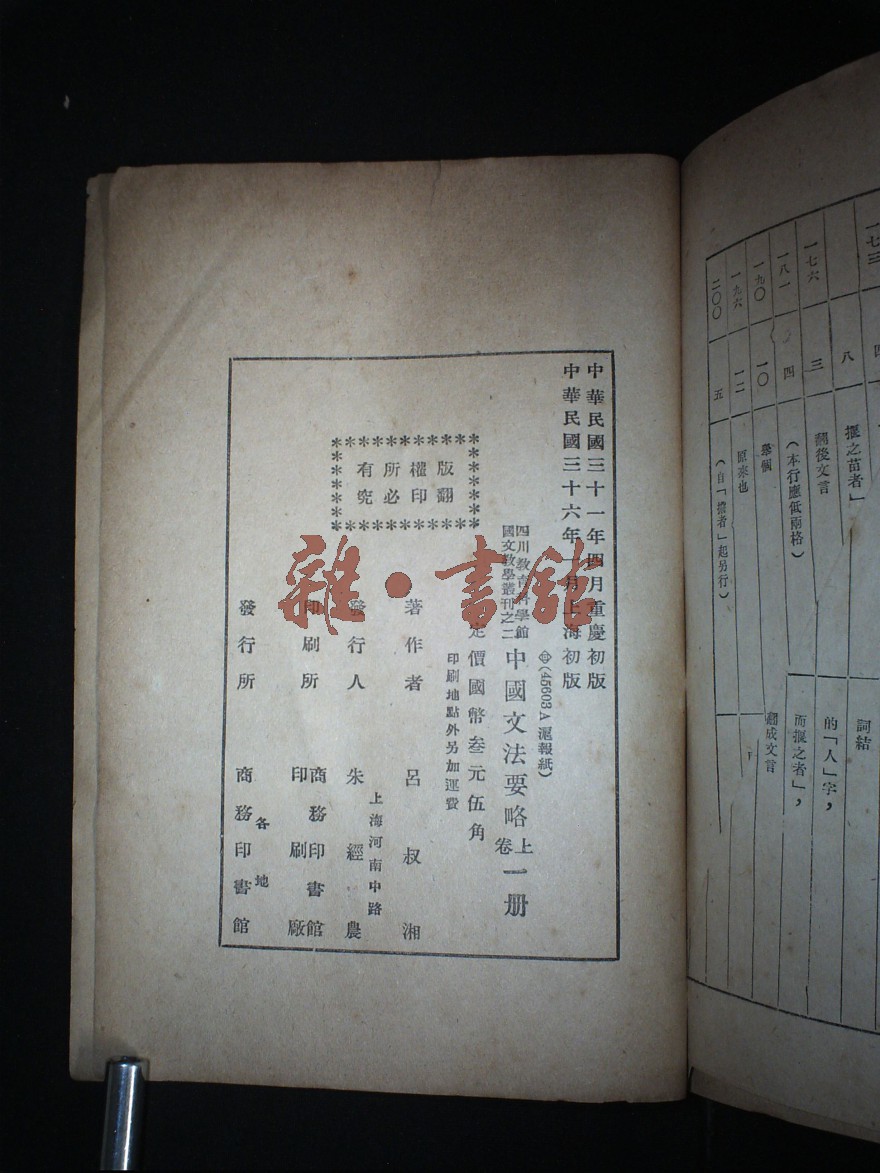 一七三
四
一七六
八
揠之苗者」
三
翻後文言
一八一
四
（本行應低兩格）
一九〇
一〇
舉個
一九六
一二
原來也
二〇〇
五
（自「揠者」起另行）
詞結
的「人」字，
而揠之者」，
翻成文言
中華民國三十一年四月重慶初版
中華民國三十六年一月上海初版
(45603A滬報紙)
四川教育科學館
國文教學叢刊之二
中國文法要略 上卷 一册
定價國幣叁元伍角
印刷地點外另加運費
版權所有
翻印必究
著作者 呂叔湘
上海河南中路
發行人 朱經農
印刷所 商務印書館
印刷廠
發行所 各地
商務印書館
雜·書館